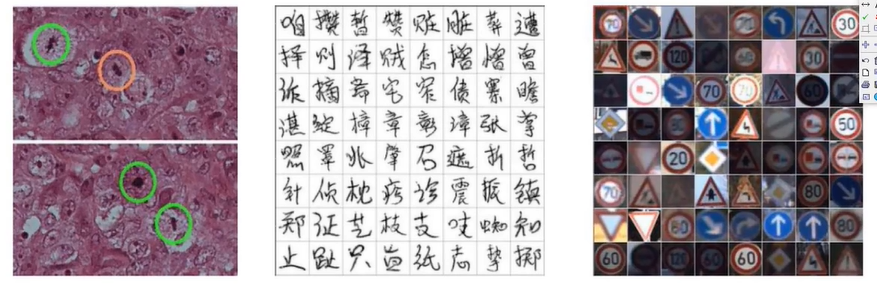 咱 攒 暂 赞 赃 脏 葬 遭
择 则 泽 贼 怎 增 憎 曾
诈 摘 斋 宅 窄 债 寨 瞻
湛 绽 樟 章 彰 漳 张 掌
照 罩 兆 肇 召 遮 折 哲
针 侦 枕 疹 诊 震 振 镇
郑 证 芝 枝 支 吱 蜘 知
止 趾 只 旨 纸 志 挚 掷
70 70 30
120
70 70 60
50
20
70 80
80
60 120 60 60